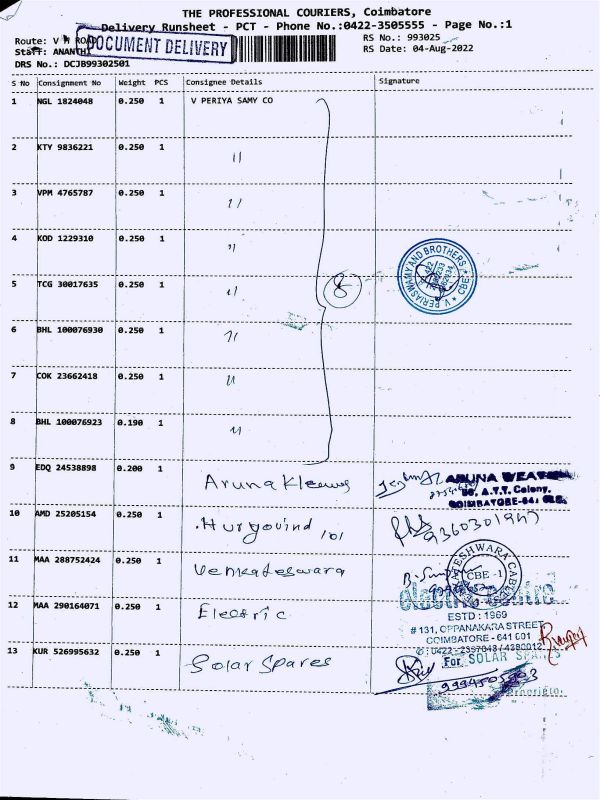 THE PROFESSIONAL COURIERS, Coimbatore
Delivery Runsheet - PCT - Phone No.:0422-3505555 - Page No.:1
Route: V H ROAD
DOCUMENT DELIVERY
RS No.: 993025
Staff: ANANTHI
RS Date: 04-Aug-2022
DRS No.: DCJB99302501
S No Consignment No Weight PCS Consignee Details Signature
1 NGL 1824048 0.250 1 V PERIYA SAMY CO
2 KTY 9836221 0.250 1 〃
3 VPM 4765787 0.250 1 〃
4 KOD 1229310 0.250 1 〃
V PERIASWAMY AND BROTHERS CBE
5 TCG 30017635 0.250 1 〃
8
6 BHL 100076930 0.250 1 〃
7 COK 23662418 0.250 1 〃
8 BHL 100076923 0.190 1 〃
9 EDQ 24538898 0.200 1 Aruna
ARUNA
A.T.T. Colony,
COIMBATORE-641
10 AMD 25205154 0.250 1 Hurgovind
11 MAA 288752424 0.250 1 Venkateswara
CBE -1
12 MAA 290164071 0.250 1 Electric
electric centre
ESTD : 1969
# 131, OPPANAKARA STREET
COIMBATORE - 641 001
13 KUR 526995632 0.250 1 Solar Spares
For SOLAR SPARES
9994505903